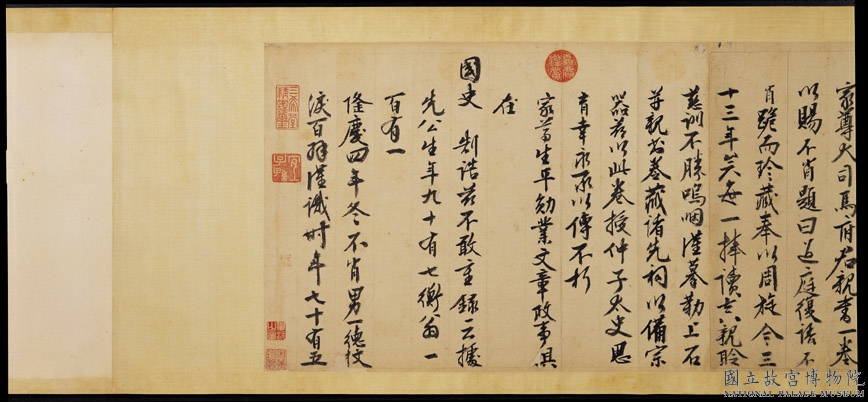 家尊大司馬府君親書一卷
以賜不肖題曰過庭復語不
肖跪而珍藏奉以周旋今三
十三年矣每一捧讀忘〻親聆
慈訓不勝嗚咽謹摹勒上石
并親書卷藏諸先祠以備宗
器茲以此卷授仲子太史思
育幸永永以傳不朽
家尊生平勛業文章政事具
在
國史 制誥茲不敢重錄云據
先公生年九十有七衡翁一
百有一
隆慶四年冬不肖男一德抆
淚百拜謹識時年七十有五
國立故宮博物院
NATIONAL PALACE MUSEUM